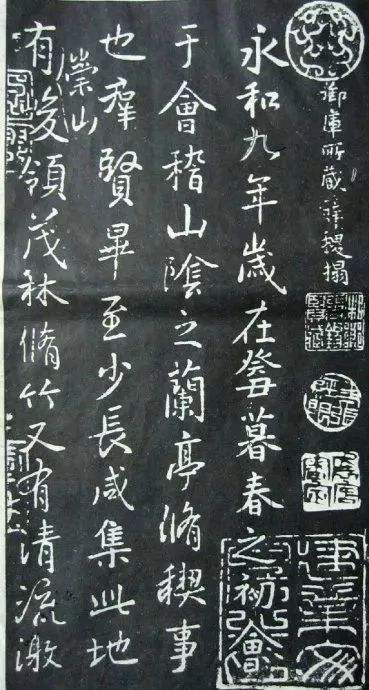 御庫所藏薛稷搨
永和九年歲在癸丑暮春之初會
于會稽山陰之蘭亭脩稧事
也羣賢畢至少長咸集此地
有崇山峻領茂林脩竹又有清流激